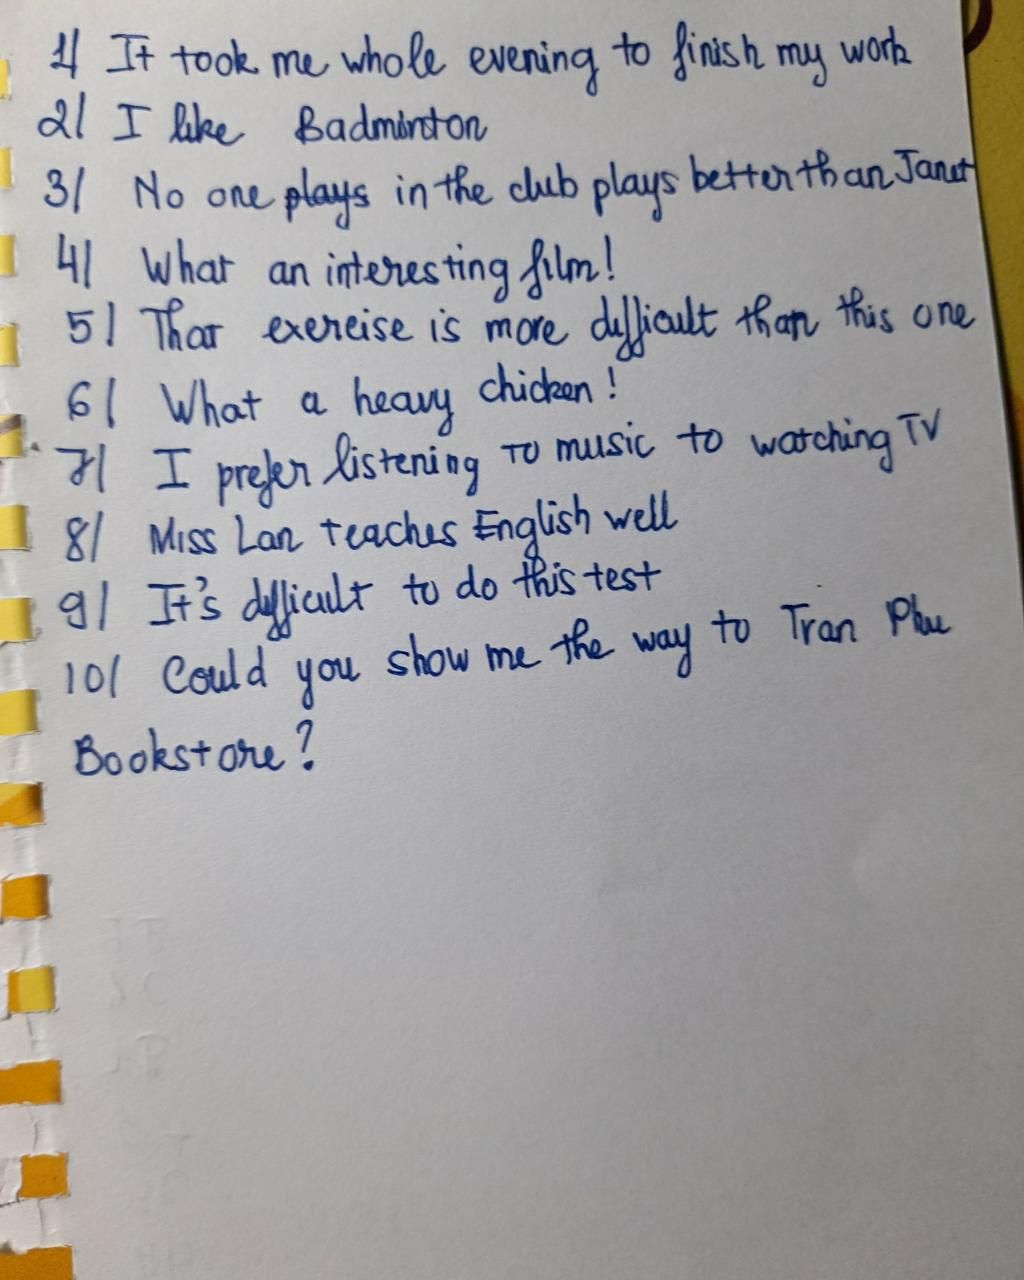 1/ It took me whole evening to finish my work
2/ I like Badminton
3/ No one plays in the club plays better than Janet
4/ What an interesting film!
5/ That exercise is more difficult than this one
6/ What a heavy chicken!
7/ I prefer listening to music to watching TV
8/ Miss Lan teaches English well
9/ It's difficult to do this test
10/ Could you show me the way to Tran Phu
Bookstore?